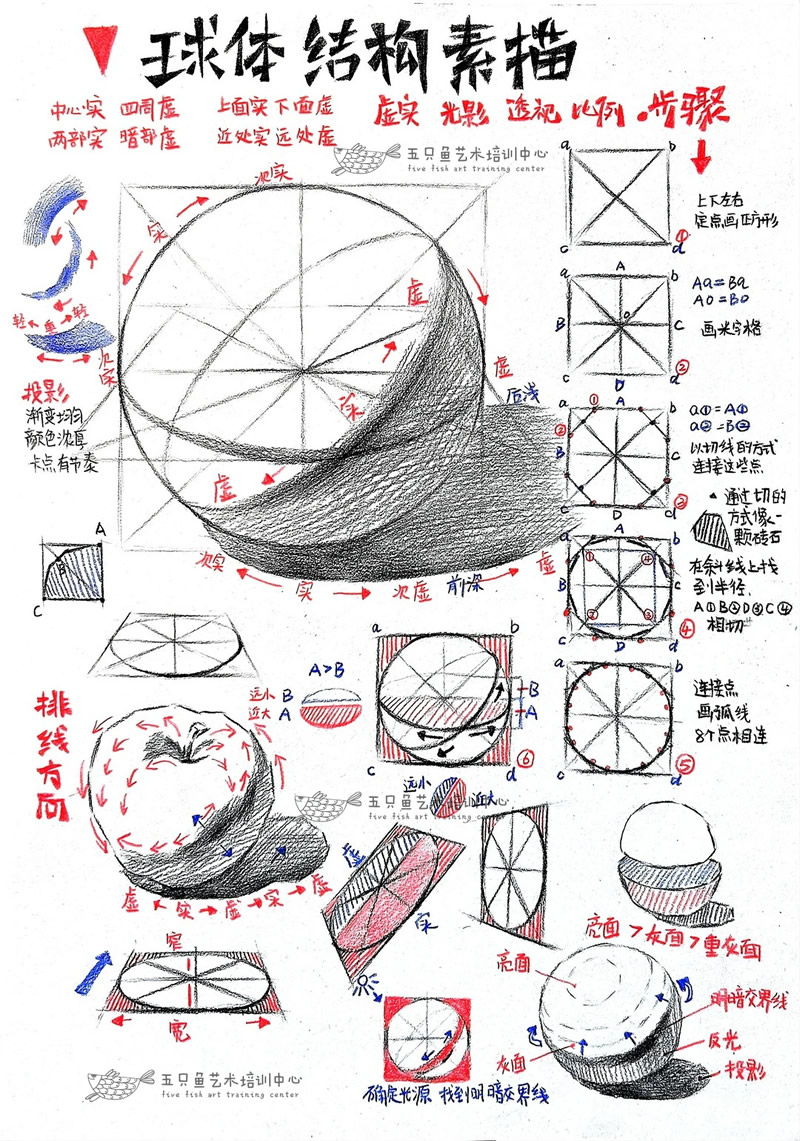 球体结构素描
中心实 四周虚 上面实 下面虚
两部实 暗部虚 近处实 远处虚
虚实 光影 透视 比例 。步骤
五只鱼艺术培训中心
five fish art training center
次实
实
虚
虚
次实
实
虚
后浅
轻 重 轻
投影
渐变均匀
颜色浓厚
卡点有节奏
A
B
C
次实 实 次虚 前深 虚
a b
c d
①
上下左右
定点画正方形
A
a b
B O C
c d
D
②
Aa=Ba
AO=BO
画米字格
① A
a b
②
B C
c d
D
③
a①=A①
a②=B②
以切线的方式
连接这些点
通过切的
方式像一
颗砖石
A
a b
① ④
B C
② ③
c d
D
④
在斜线上找
到半径
A①B②D③C④
相切
a b
c d
⑤
连接点
画弧线
8个点相连
A>B
远小 B
近大 A
a b
B
A
c d
⑥
远小 近大
排线方向
五只鱼艺术培训中心
five fish art training center
虚 实 虚 实 虚
虚
实
宽
宽
亮面>灰面>重灰面
亮面
灰面
明暗交界线
反光
投影
确定光源 找到明暗交界线
五只鱼艺术培训中心
five fish art training center